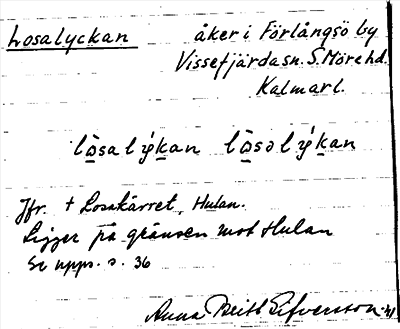 Losalyckan åker i Förlångsö by
Vissefjärda sn. S. Möre hd.
Kalmar l.
lo̲salýk̲an lo̲səlýk̲an
Jfr. + Losakärret, Hulan.
Ligger på gränsen mot Hulan
Se upps. s. 36
Anna Britt Elfversson -41